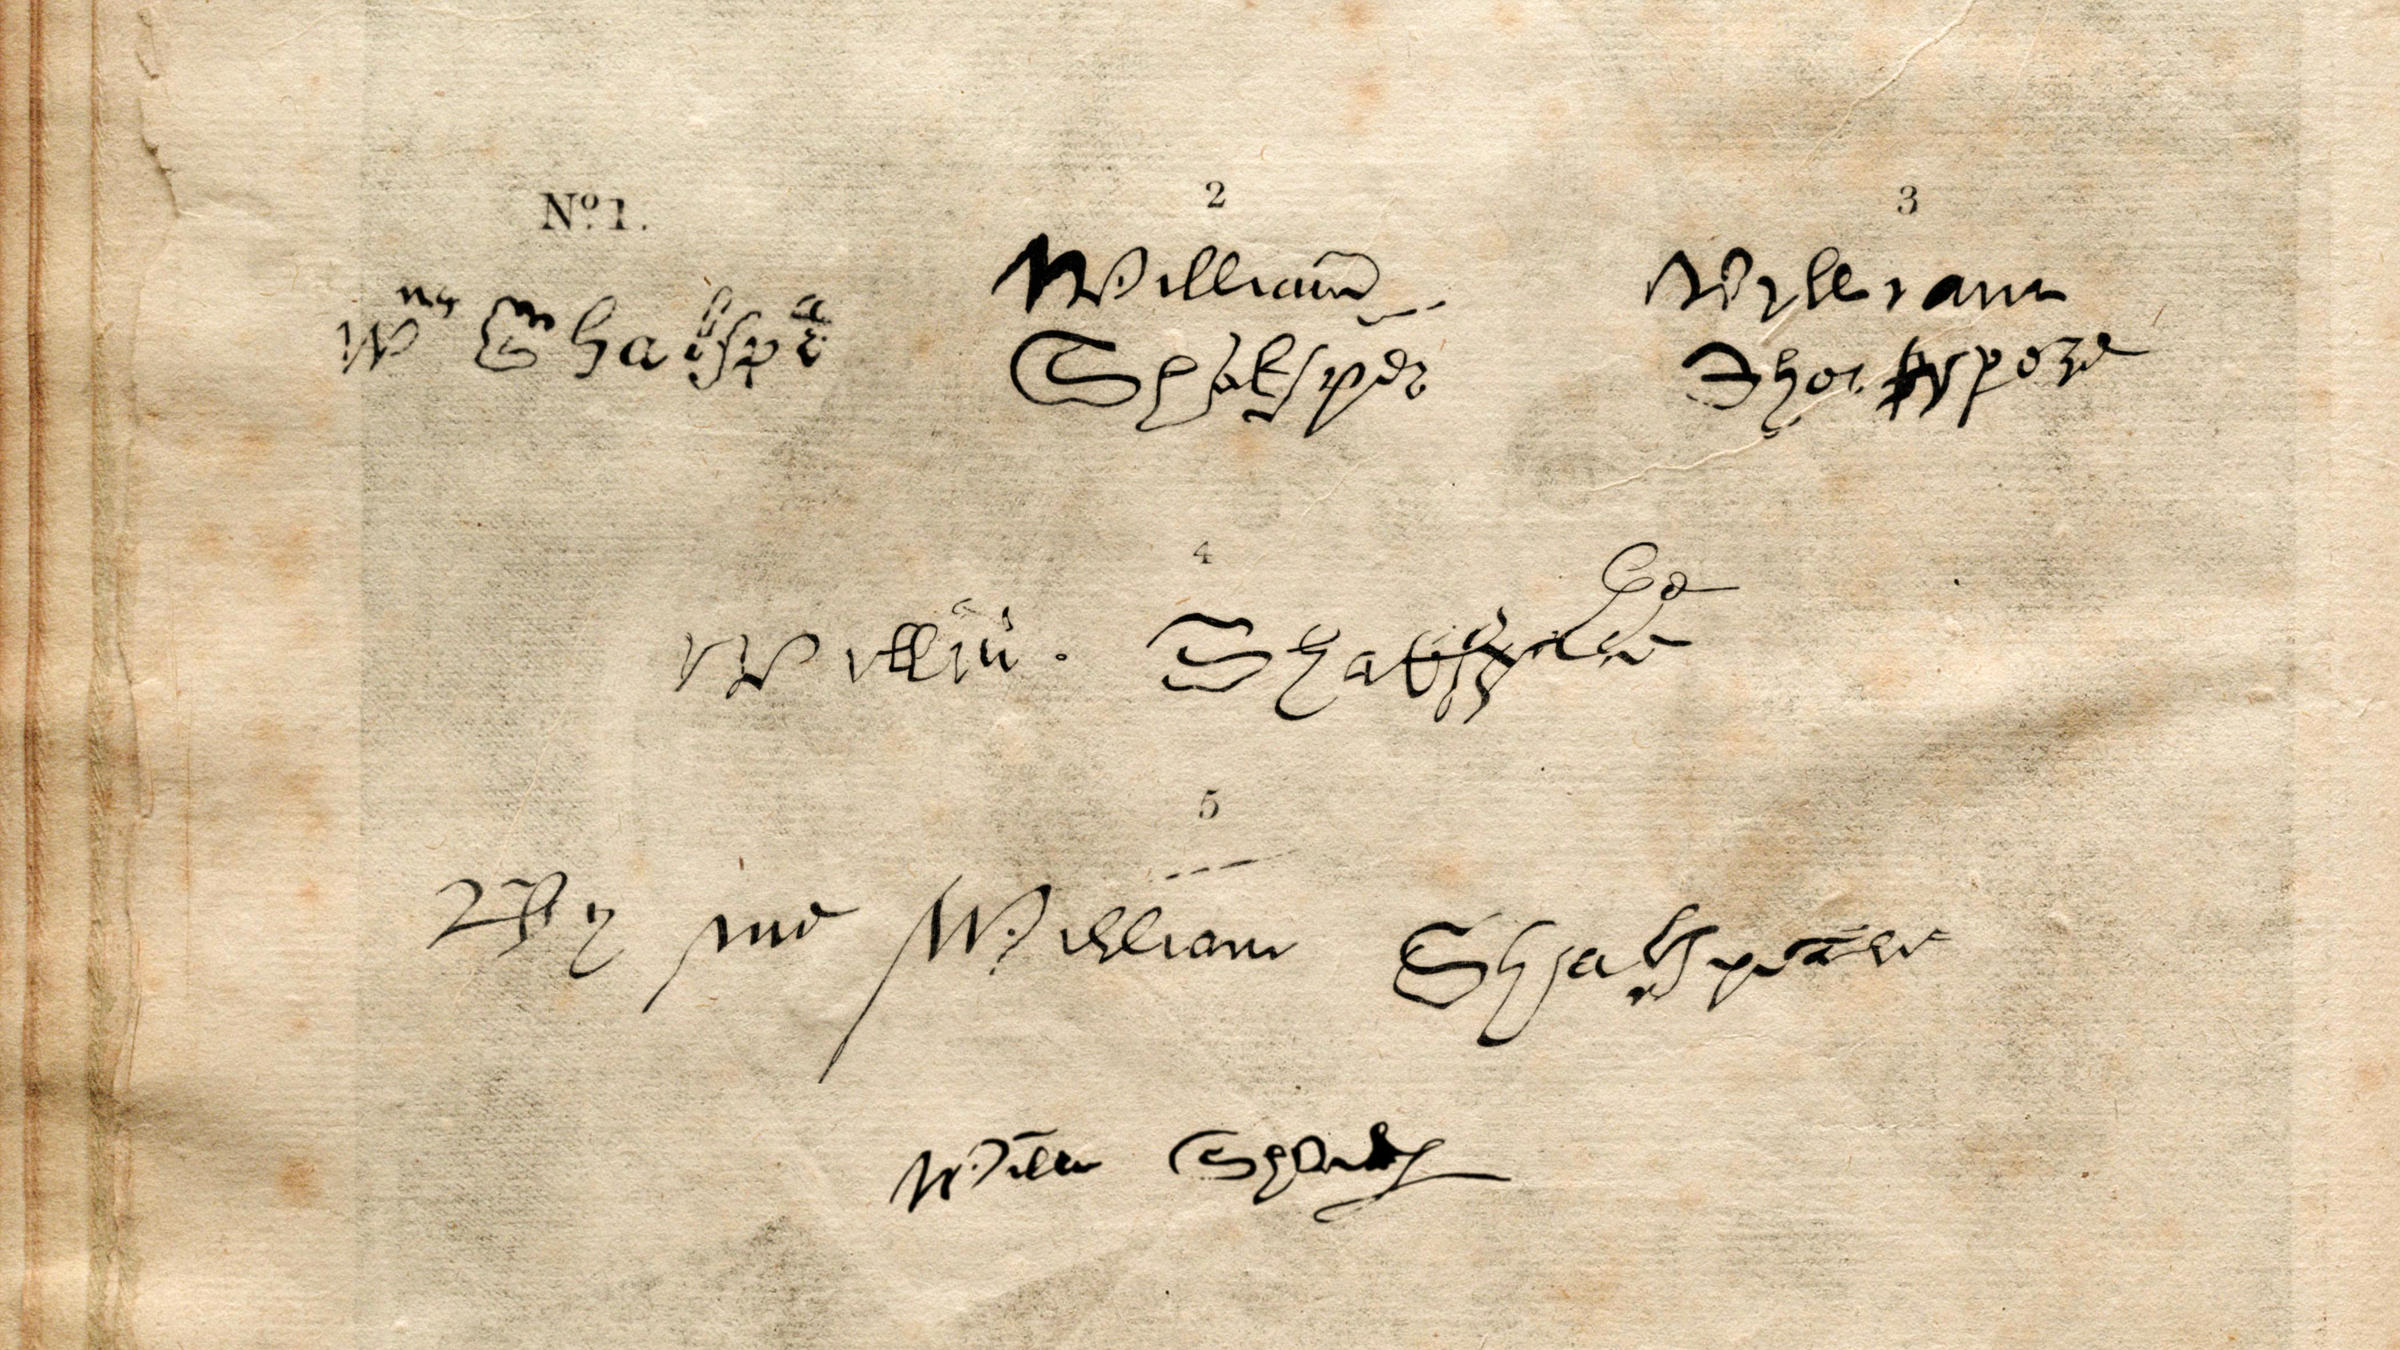 Nº 1.
2
3
Wm Shakspē
William
Shakspēr
William
Shakspere
4
Willm. Shakspere
5
By me William Shakspeare
Willm Shakp